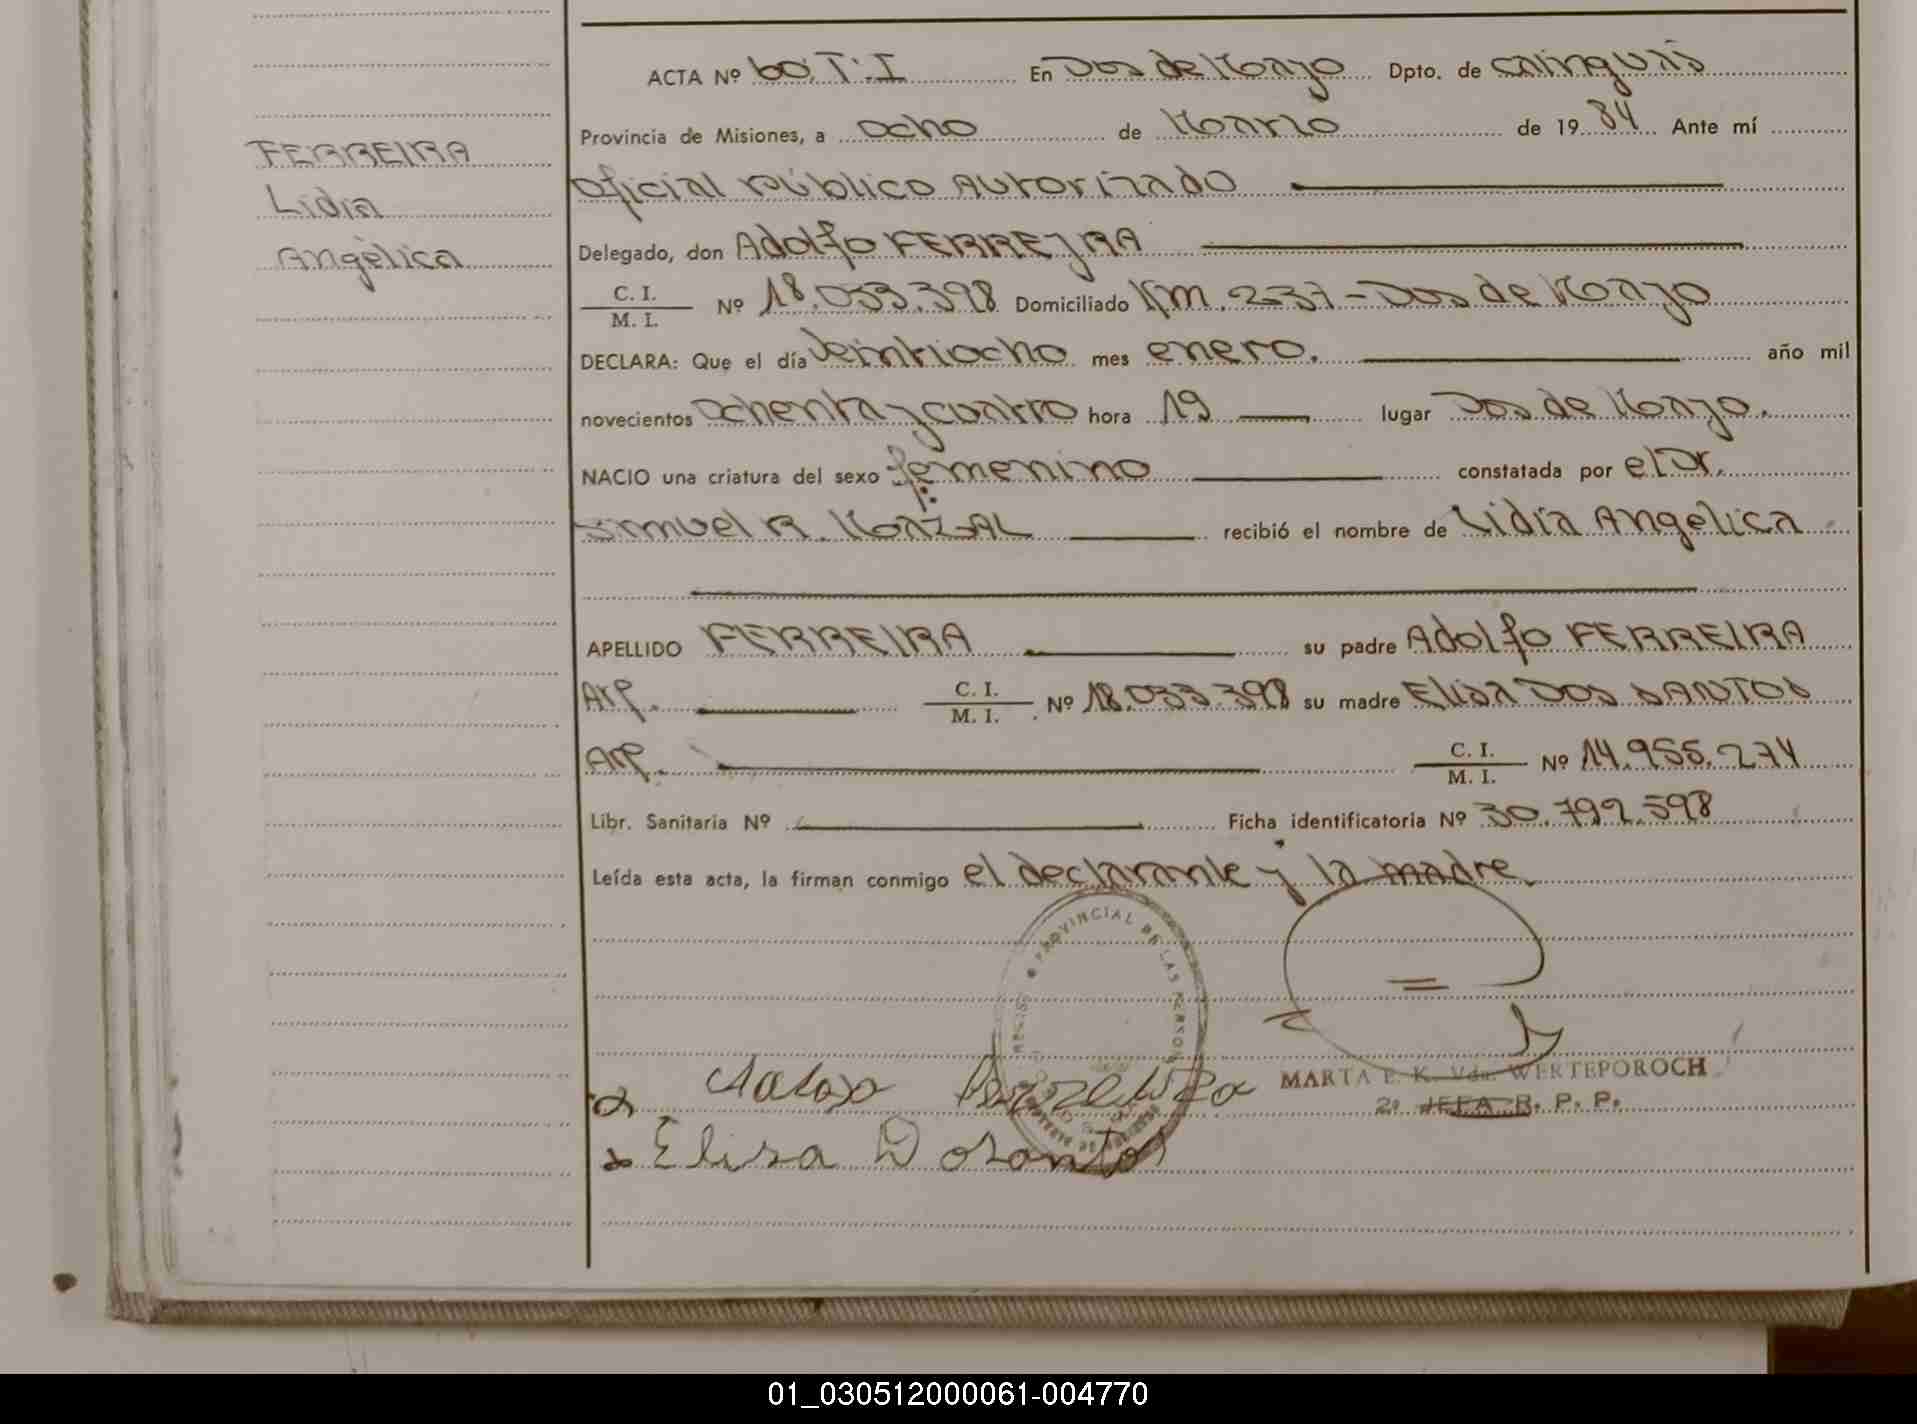 ACTA Nº 60. T. I En Dos de Mayo Dpto. de Cainguás
Provincia de Misiones, a ocho de Marzo de 1984 Ante mí
FERREIRA
oficial público Autorizado
Lidia
Delegado, don Adolfo FERREYRA
Angélica
C. I.
M. I. Nº 18.033.398 Domiciliado Km. 237 - Dos de Mayo
DECLARA: Que el día Veintiocho mes enero. año mil
novecientos Ochenta y cuatro hora 19 lugar Dos de Mayo.
NACIO una criatura del sexo femenino constatada por el Dr.
Samuel R. recibió el nombre de Lidia Angelica
APELLIDO FERREIRA su padre Adolfo FERREIRA
Arg. C. I.
M. I. Nº 18.033.398 su madre Elisa DOS SANTOS
Arg. C. I.
M. I. Nº 14.955.274
Libr. Sanitaria Nº Ficha identificatoria Nº 30.792.598
Leída esta acta, la firman conmigo el declarante y la madre.
PROVINCIAL DE LAS PERSON
MARTA E. K. Vda. WERTEPOROCH
2ª JEFA R. P. P.
Elisa Dosantos
01_030512000061-004770